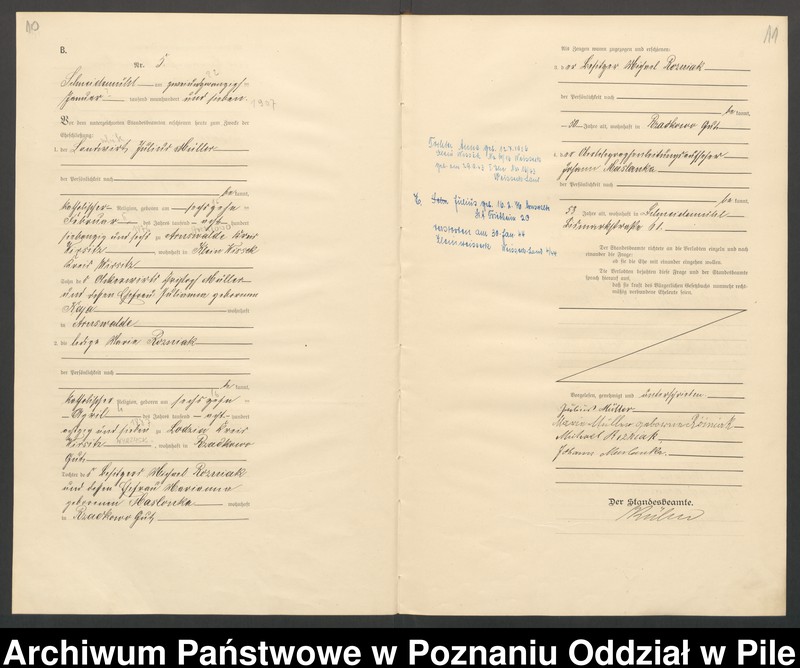 10
B.
Nr. 5
Schneidemühl am zweiundzwanzigsten
Januar tausend neunhundert und sieben.
1907
Vor dem unterzeichneten Standesbeamten erschienen heute zum Zwecke der
Eheschließung:
1. der Landwirt Julius Müller
der Persönlichkeit nach
be kannt,
katholischer Religion, geboren am sechszehn
Februar des Jahres tausend acht hundert
siebenzig und sechs zu Arnswalde Kreis
Wirsitz, wohnhaft in Klein Wissek
Kreis Wirsitz
Sohn des Ackerwirts Müller
und dessen Ehefrau Julianna geborenen
Kaja wohnhaft
in Arnswalde
2. die ledige Maria Rozniak
der Persönlichkeit nach
be kannt,
katholischer Religion, geboren am sechszehn
April des Jahres tausend acht hundert
achtzig und sieben zu Lodzia Kreis
Wirsitz, wohnhaft in Rzadkowo
Gut
Tochter des Besitzers Michael Rozniak
und dessen Ehefrau Marianna
geborenen Maslonka wohnhaft
in Rzadkowo Gut
11
Als Zeugen waren zugezogen und erschienen:
3. der Besitzer Michael Rozniak
der Persönlichkeit nach
be kannt,
50 Jahre alt, wohnhaft in Rzadkowo Gut
4. der Obertelegraphenleitungsaufseher
Johann Maslonka
der Persönlichkeit nach
be kannt,
53 Jahre alt, wohnhaft in Schneidemühl
Bismarkstraße 61.
Tochter Anna geb.
Sohn Julius geb. 16.
verstorben am 30. Jan. 44
Der Standesbeamte richtete an die Verlobten einzeln und nach
einander die Frage:
ob sie die Ehe mit einander eingehen wollen.
Die Verlobten bejahten diese Frage und der Standesbeamte
sprach hierauf aus,
daß sie kraft des Bürgerlichen Gesetzbuchs nunmehr recht-
mäßig verbundene Eheleute seien.
Vorgelesen, genehmigt und unterschrieben
Julius Müller
Maria Müller geborene Rozniak
Michael Rozniak
Johann Maslonka
Der Standesbeamte.
Archiwum Państwowe w Poznaniu Oddział w Pile